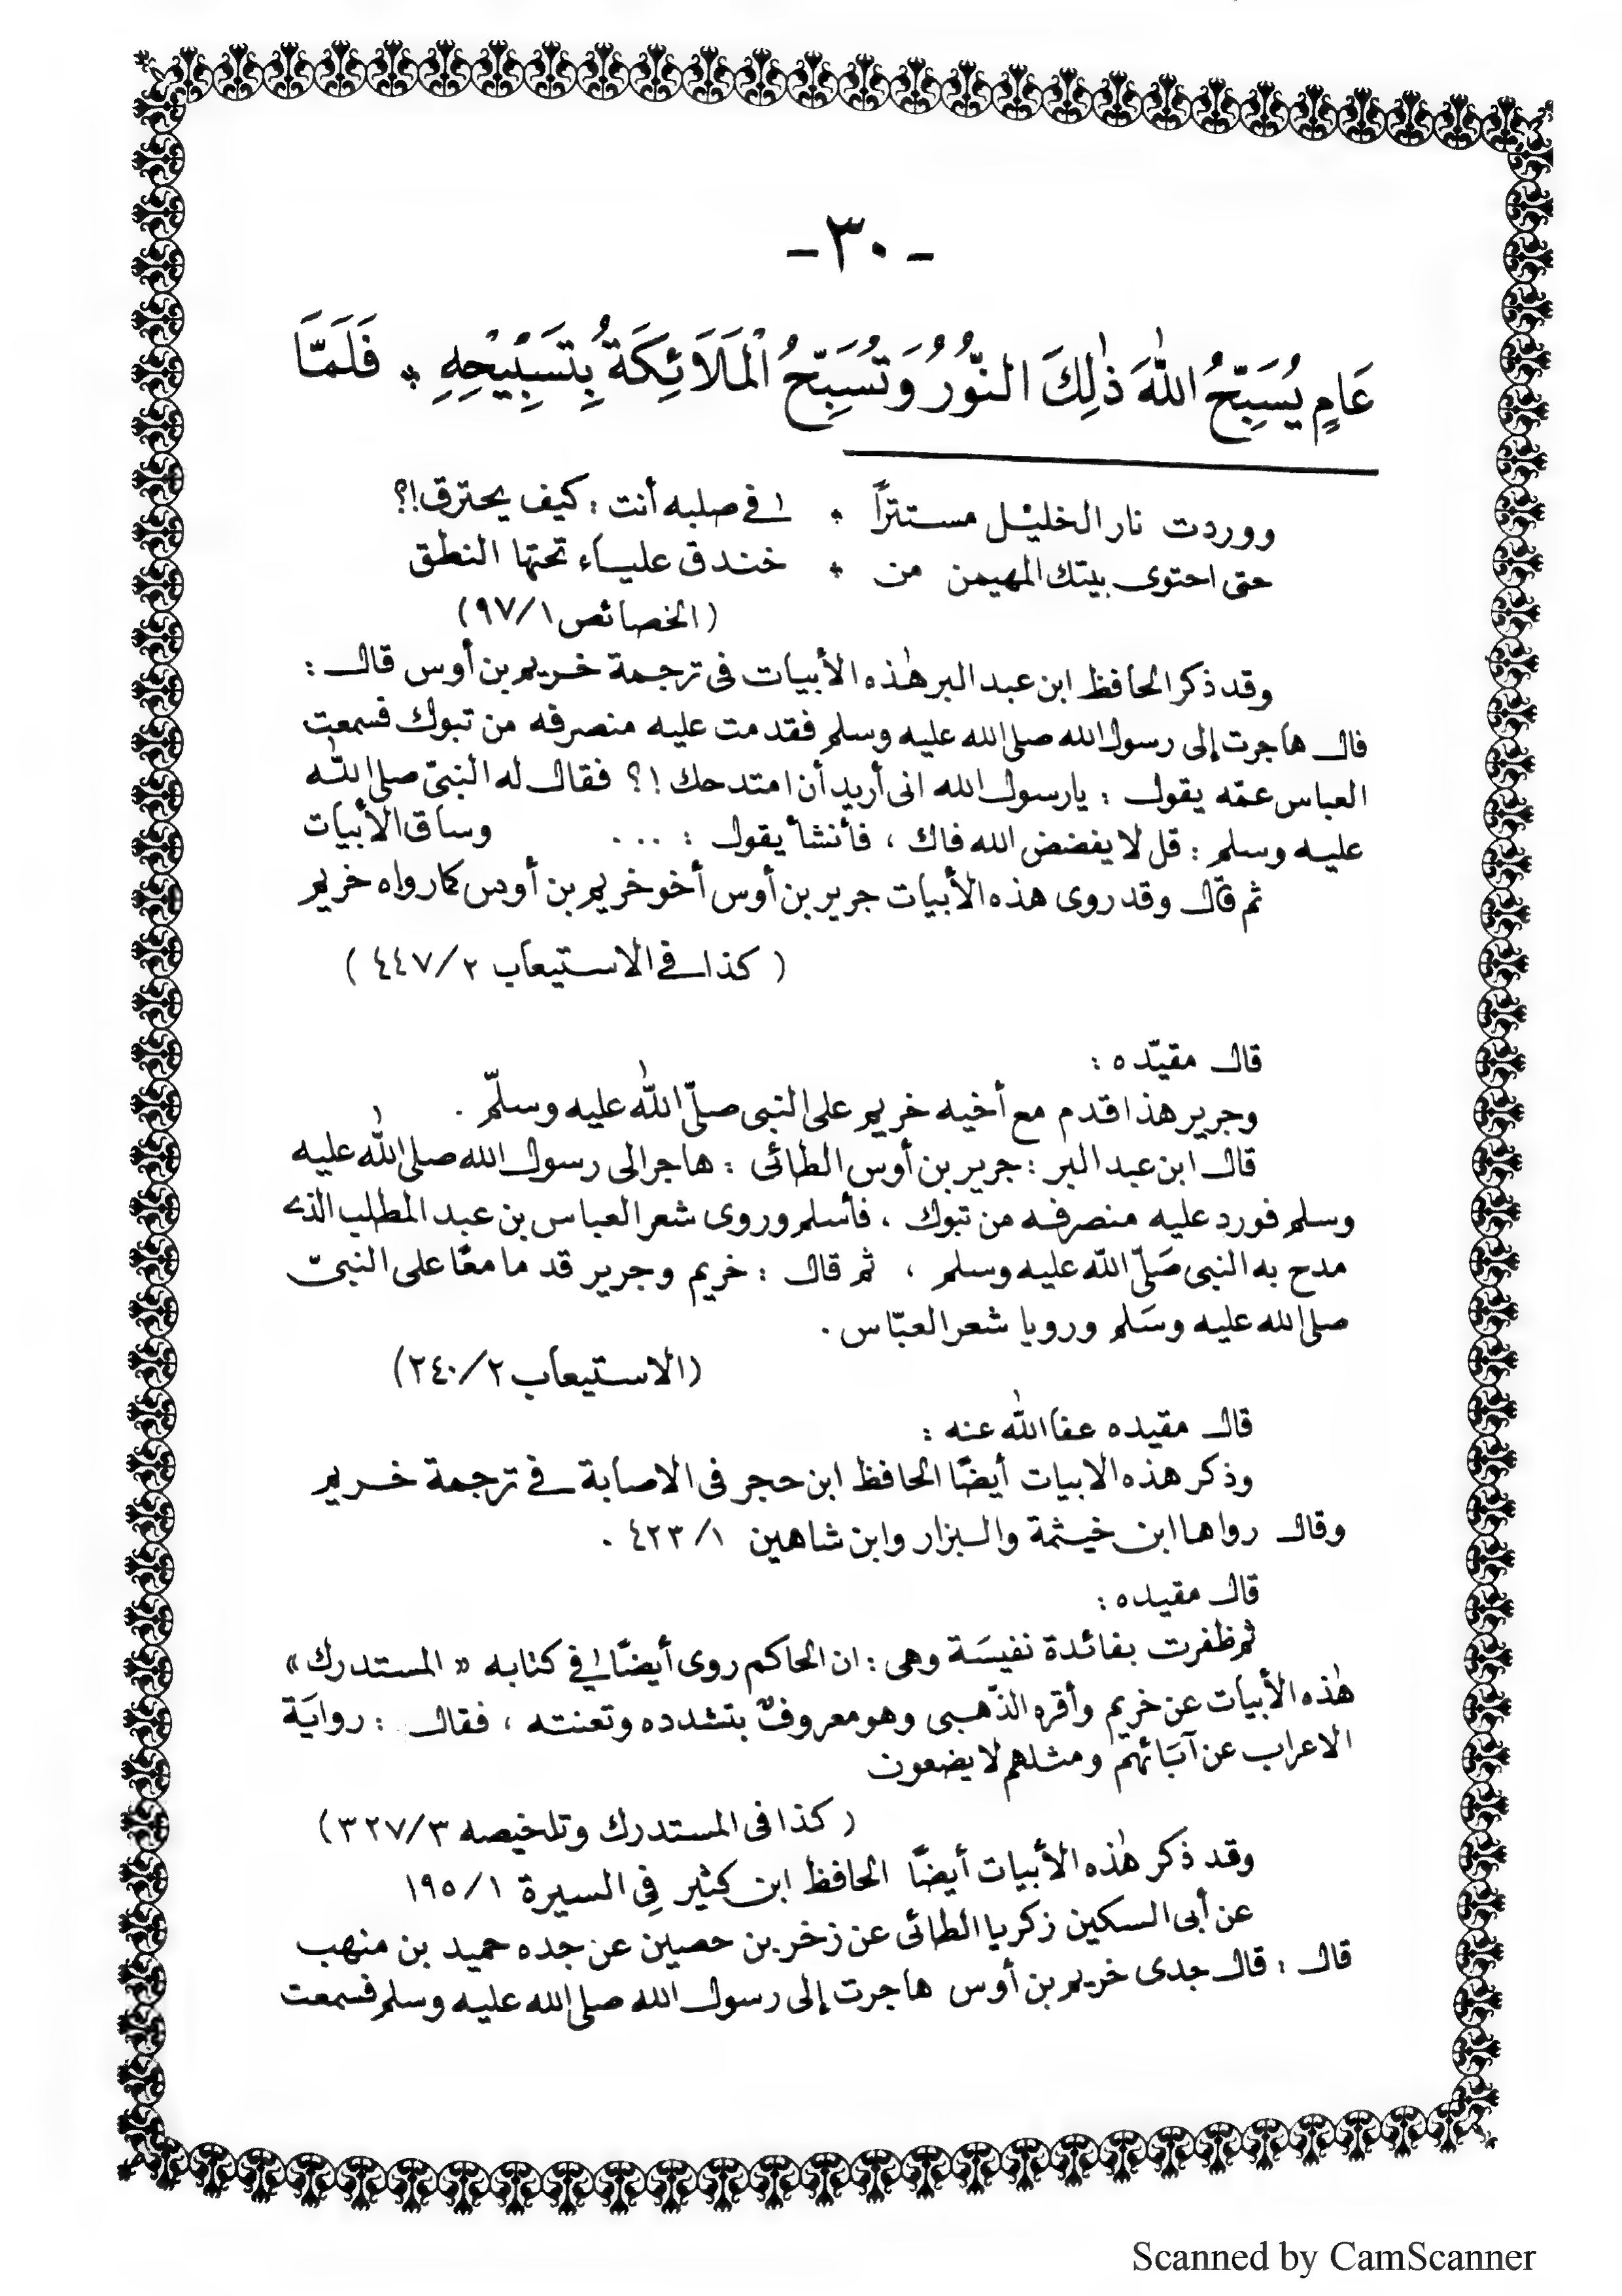 - ٣٠ -
عَامٍ يُسَبِّحُ اللهَ ذٰلِكَ النُّورُ وَتُسَبِّحُ الْمَلَائِكَةُ بِتَسْبِيْحِهِ * فَلَمَّا
ووردت نار الخليل مستترًا * في صلبه أنت : كيف يحترق!؟
حتى احتوى بيتك المهيمن من * خندق علياء تحتها النطق
(الخصائص ٩٧/١)
وقد ذكر الحافظ ابن عبد البر هٰذه الأبيات في ترجمة خريم بن أوس قال :
قال هاجرت إلى رسول الله صلى الله عليه وسلم فقدمت عليه منصرفه من تبوك فسمعت
العباس عمّه يقول : يا رسول الله انى أريد أن امتدحك !؟ فقال له النبيّ صلى الله
عليه وسلم : قل لا يفضض الله فاك ، فأنشأ يقول : ... وساق الأبيات
ثم قال وقد روى هذه الأبيات جرير بن أوس أخو خريم بن أوس كما رواه خريم
( كذا في الاستيعاب ٤٤٧/٢ )
قال مقيّده :
وجرير هذا قدم مع أخيه خريم على النبى صلّى الله عليه وسلّم .
قال ابن عبد البر : جرير بن أوس الطائى : هاجر الى رسول الله صلى الله عليه
وسلم فورد عليه منصرفه من تبوك ، فأسلم وروى شعر العباس بن عبد المطلب الذي
مدح به النبى صَلّى الله عليه وسلم ، ثم قال : خريم وجرير قدما معًا على النبىّ
صلى الله عليه وسَلم ورويا شعر العبّاس .
(الاستيعاب ٢٤٠/٢)
قال مقيده عفا الله عنه :
وذكر هذه الابيات أيضًا الحافظ ابن حجر فى الاصابة في ترجمة خريم
وقال رواها ابن خيثمة والبزار وابن شاهين ٤٢٣/١ .
قال مقيده :
ثم ظفرت بفائدة نفيسَة وهى : ان الحاكم روى أيضًا في كتابه « المستدرك »
هٰذه الأبيات عن خريم وأقره الذّهبى وهو معروفٌ بتشدده وتعنته ، فقال : روايَة
الاعراب عن آبَائهم ومثلهم لا يضعون
( كذا فى المستدرك وتلخيصه ٣٢٧/٣ )
وقد ذكر هٰذه الأبيات أيضًا الحافظ ابن كثير في السيرة ١٩٥/١
عن أبى السكين زكريا الطائى عن زخر بن حصين عن جده حميد بن منهب
قال : قال جدى خريم بن أوس هاجرت إلى رسول الله صلى الله عليه وسلم فسمعت
Scanned by CamScanner